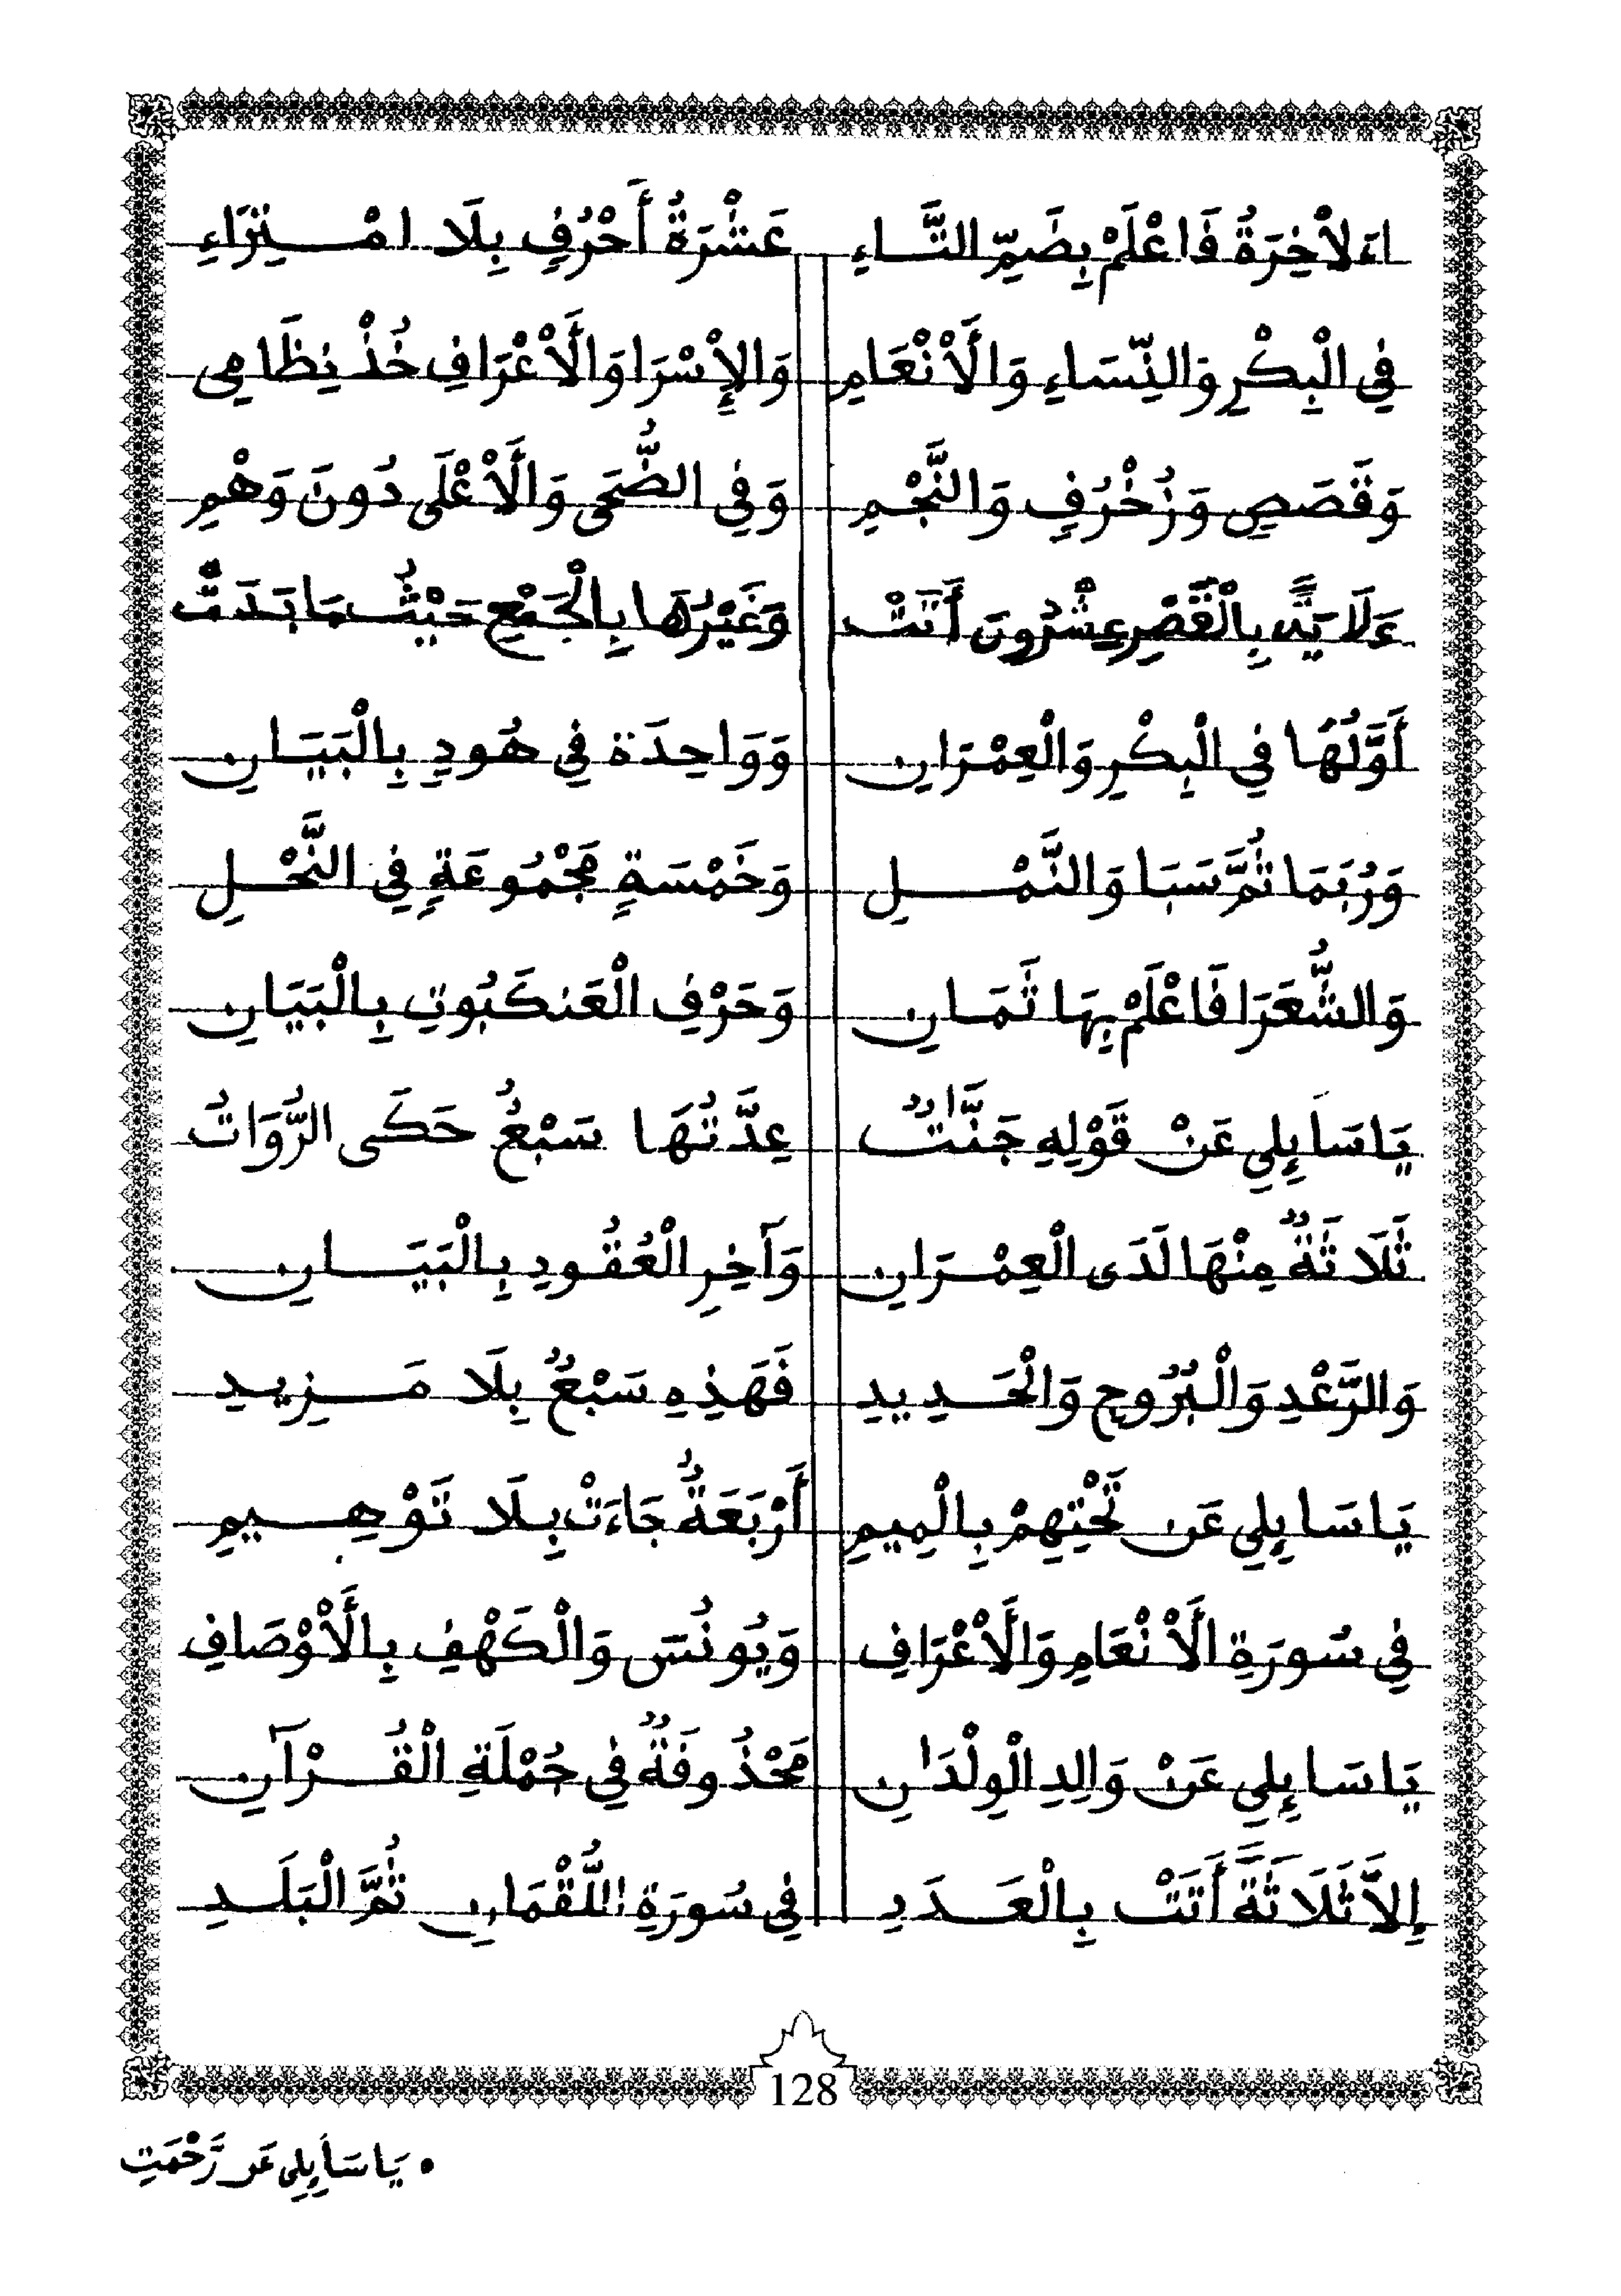 اءَلاْخِرَةُ فَاعْلَمْ بِضَمِّ التَّاءِ عَشْرَةُ أَحْرُفٍ بِلَا امْتِرَاءِ
فِي الْبِكْرِ وَالنِّسَاءِ وَالْأَنْعَامِ وَالإِسْرَا وَالْأَعْرَافِ خُذْ نِظَامِي
وَقَصَصٍ وَزُخْرُفٍ وَالنَّجْمِ وَفِي الضُّحَى وَالْأَعْلَى دُونَ وَهْمِ
ءَلَايَةً بِالْقَصْرِ عِشْرُونَ أَتَتْ وَغَيْرُهَا بِالْجَمْعِ حَيْثُمَا بَدَتْ
أَوَّلُهَا فِي الْبِكْرِ وَالْعِمْرَانِ وَوَاحِدَة فِي هُودِ بِالْبَيَانِ
وَرُبَمَا ثُمَّ سَبَا وَالنَّمْلِ وَخَمْسَةٍ مَجْمُوعَةٍ فِي النَّحْلِ
وَالشُّعَرَا فَاعْلَمْ بِهَا ثَمَانِ وَحَرْفِ الْعَنكَبُوتِ بِالْبَيَانِ
يَاسَاَئِلِي عَنْ قَوْلِهِ جَنَّٰتٌ عِدَّتُهَا سَبْعُ حَكَى الرُّوَاتُ
ثَلَاثَةٌ مِنْهَا لَدَى الْعِمْرَانِ وَآخِرِ الْعُقُودِ بِالْبَيَانِ
وَالرَّعْدِ وَالْبُرُوجِ وَالْحَدِيدِ فَهَذِهِ سَبْعٌ بِلَا مَزِيدِ
يَاسَائِلِي عَن تَحْتِهِمْ بِالْمِيمِ أَرْبَعَةٌ جَاءَتْ بِلَا تَوْهِيمِ
فِي سُورَةِ الْأَنْعَامِ وَالْأَعْرَافِ وَيُونُسَ وَالْكَهْفِ بِالْأَوْصَافِ
يَاسَائِلِي عَنْ وَالِدِ الْوِلْدَٰنِ مَحْذُوفَةٌ فِي جُمْلَةِ الْقُرْآنِ
إِلَّا ثَلَاثَةً أَتَتْ بِالْعَدَدِ فِي سُورَةِ اللُّقْمَانِ ثُمَّ الْبَلَدِ
128
• يَاسَاَئِلِي عَن رَّحْمَتِ